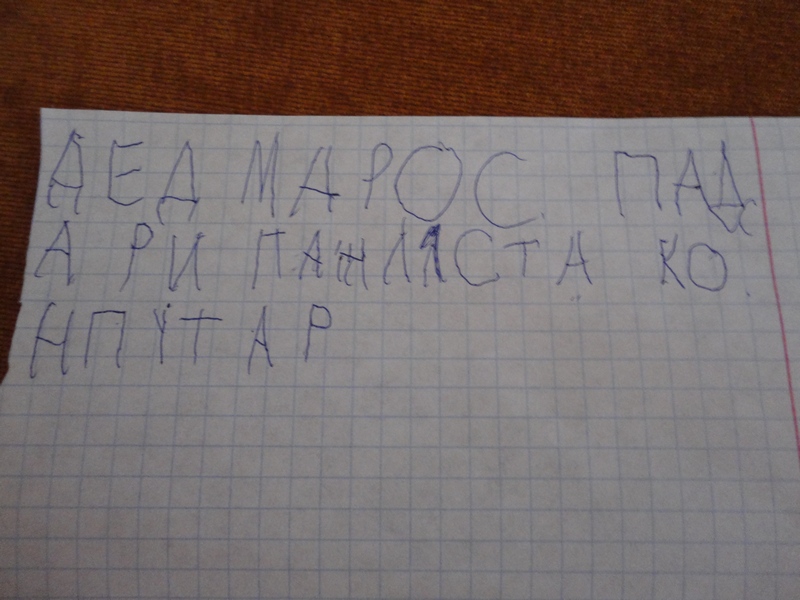 ДЕД МАРОС. ПАД
А РИ ПАЖЛЛСТА КО.
НПУТАР